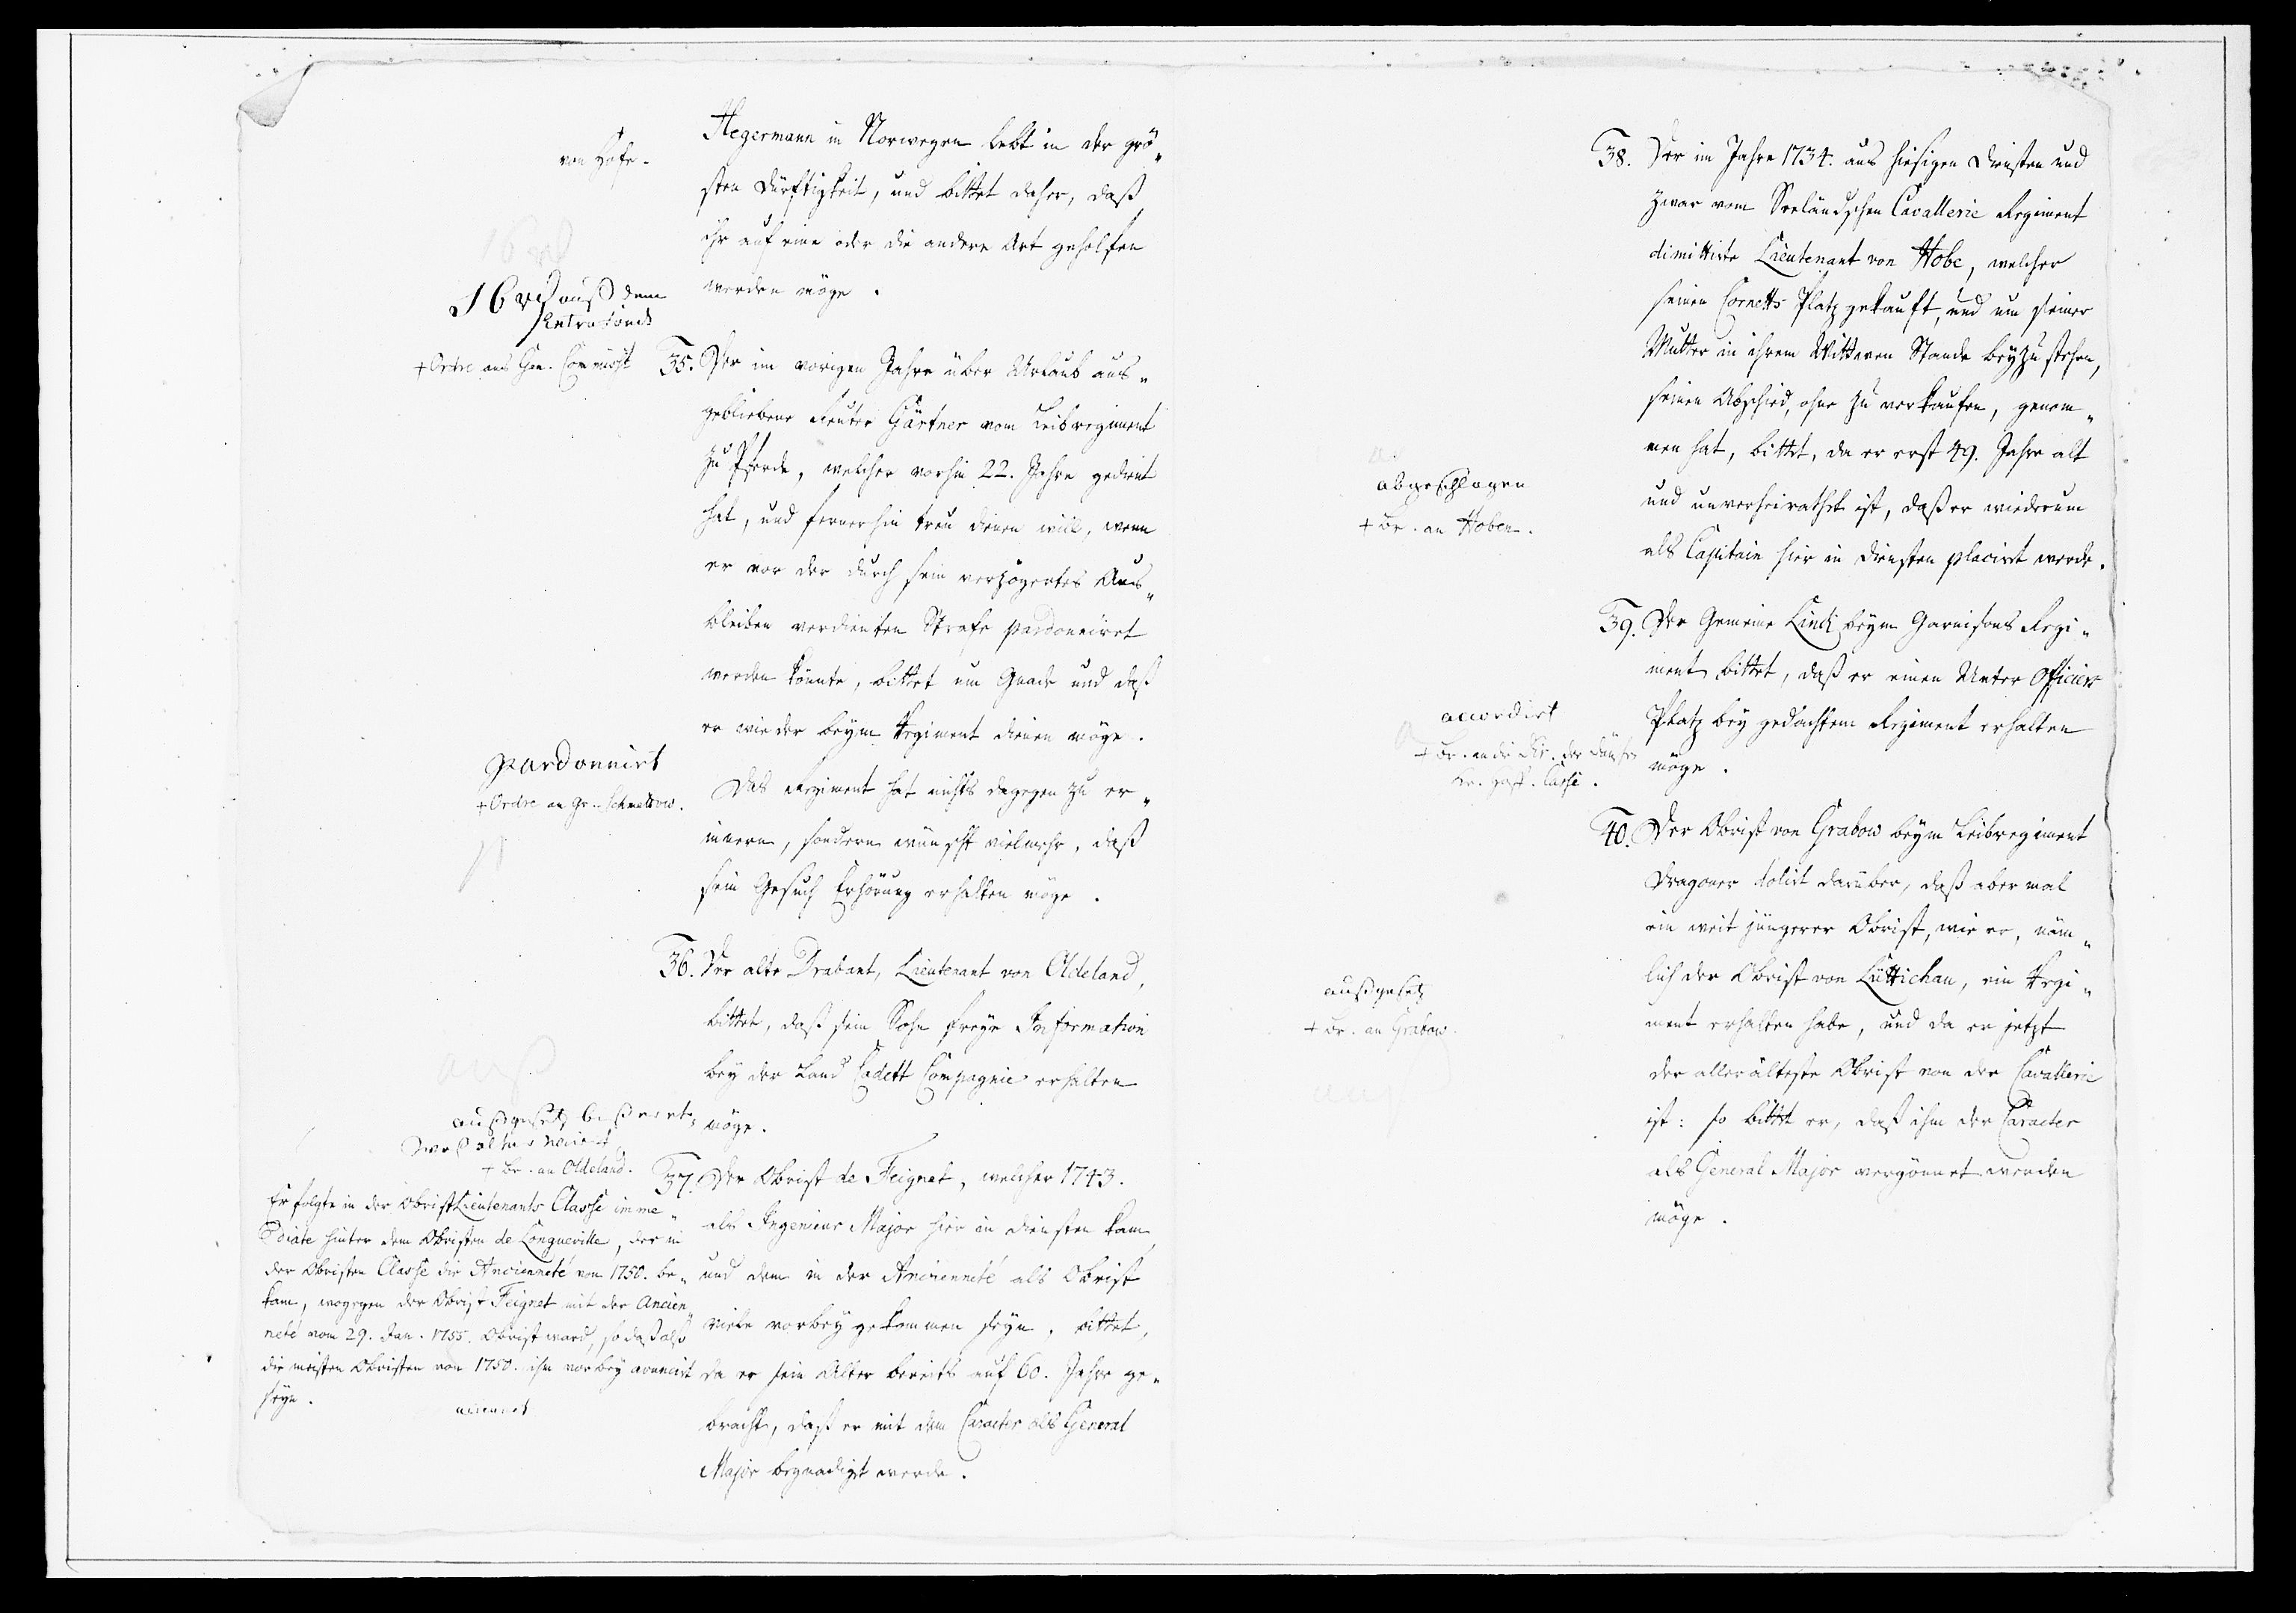 von Hofe.
Hegermann in Norwegen lebt in der grö„
sten Dürftigkeit, und bittet daher, daß
ihr auf eine oder die andere Art geholfen
werden möge.
16 rd auß dem
Extrafonds
+ Ordre ans Gen. Commiss
35. Der im vorigen Jahre über Urlaub aus„
gebliebene Reuter Gärtner vom Leibregiment
zu Pferde, welcher vorhin 22. Jahre gedient
hat, und fernerhin treu dienen will, wenn
er vor der durch sein verzögertes Aus„
bleiben verdienten Strafe pardonniret
werden könnte, bittet um Gnade und daß
er wieder beym Regiment dienen möge.
pardonnirt
+ Ordre an Gr. Schmettow.
Das Regiment hat nichts dagegen zu er„
innern, sondern wünscht vielmehr, daß
sein Gesuch Erhörung erhalten möge.
36. Der alte Drabant, Lieutenant von Oldeland,
bittet, daß sein Sohn freye Information
bey der Land Cadett Compagnie erhalten
möge.
außgesetz biß
+ Br. an Oldeland.
37. Der Obrist de Feignet, welcher 1743.
als Ingenieur Major hier in Diensten kam,
und dem in der Ancienneté als Obrist
viele vorbey gekommen seyn, bittet,
da er sein Alter bereits auf 60. Jahre ge„
bracht, daß er mit dem Caracter als General
Major begnadiget werde.
Er folgte in der ObristLieutenants Classe imme„
diate hinter dem Obristen de Longueville, der in
der Obristen Classe die Ancienneté von 1750. be„
kam, wogegen der Obrist Feignet mit der Ancien„
neté vom 29. Jan. 1755. Obrist ward, so daß also
die meisten Obristen von 1750. ihm vorbey avancirt
seyn.
38. Der im Jahre 1734. aus hiesigen Diensten und
zwar vom Seeländschen Cavallerie Regiment
dimittirte Lieutenant von Hobe, welcher
seinen Cornetts Platz gekauft, und um seiner
Mutter in ihrem Wittwen Stande beyzustehen,
seinen Abschied, ohne zu verkaufen, genom„
men hat, bittet, da er erst 49. Jahre alt
und unverheirathet ist, daß er wiederum
als Capitain hier in Diensten placirt werde.
abgeschlagen
+ Br. an Hoben.
39. Der Gemeine Linck beym Garnisons Regi„
ment bittet, daß er einen Unter Officiers
Platz bey gedachtem Regiment erhalten
möge.
accordirt
+ Br. an die Dir. der
Casse.
40. Der Obrist von Grabow beym Leibregiment
Dragoner dolirt darüber, daß abermal
ein weit jüngerer Obrist, wie er, näm„
lich der Obrist von Lüttichau, ein Regi„
ment erhalten habe, und da er jetzt
der allerälteste Obrist von der Cavallerie
ist: so bittet er, daß ihm der Caracter
als General Major vergönnet werden
möge.
außgesetz
+ Br. an Grabow.